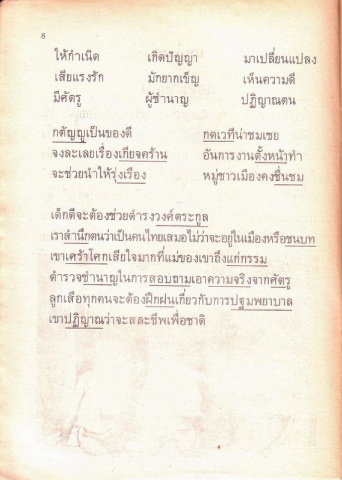 8
ให้กำเนิด เกิดปัญญา มาเปลี่ยนแปลง
เสียแรงรัก มักยากเข็ญ เห็นความดี
มีศัตรู ผู้ชำนาญ ปฏิญาณตน
กตัญญูเป็นของดี กตเวทีน่าชมเชย
จงละเลยเรื่องเกียจคร้าน อันการงานตั้งหน้าทำ
จะช่วยนำให้รุ่งเรือง หมู่ชาวเมืองคงชื่นชม
เด็กดีจะต้องช่วยดำรงวงศ์ตระกูล
เราสำนึกตนว่าเป็นคนไทยเสมอไม่ว่าจะอยู่ในเมืองหรือชนบท
เขาเศร้าโศกเสียใจมากที่แม่ของเขาถึงแก่กรรม
ตำรวจชำนาญในการสอบถามเอาความจริงจากศัตรู
ลูกเสือทุกคนจะต้องฝึกฝนเกี่ยวกับการปฐมพยาบาล
เขาปฏิญาณว่าจะสละชีพเพื่อชาติ